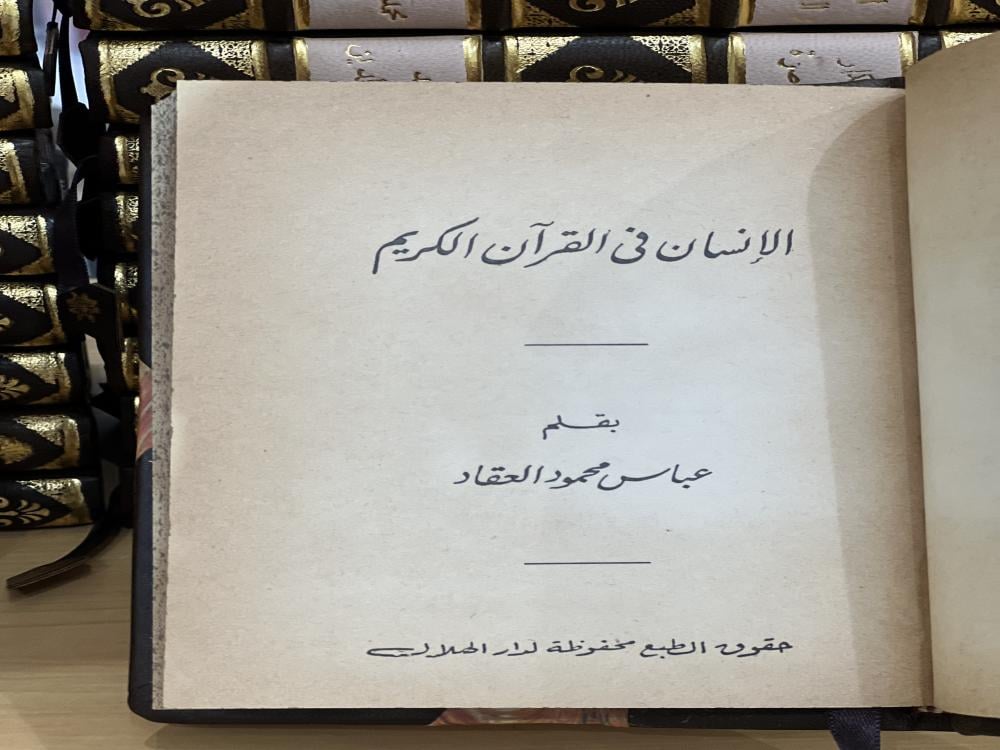 الإنسان فى القرآن الكريم
بقلم
عباس محمود العقاد
حقوق الطبع محفوظة لدار الهلال